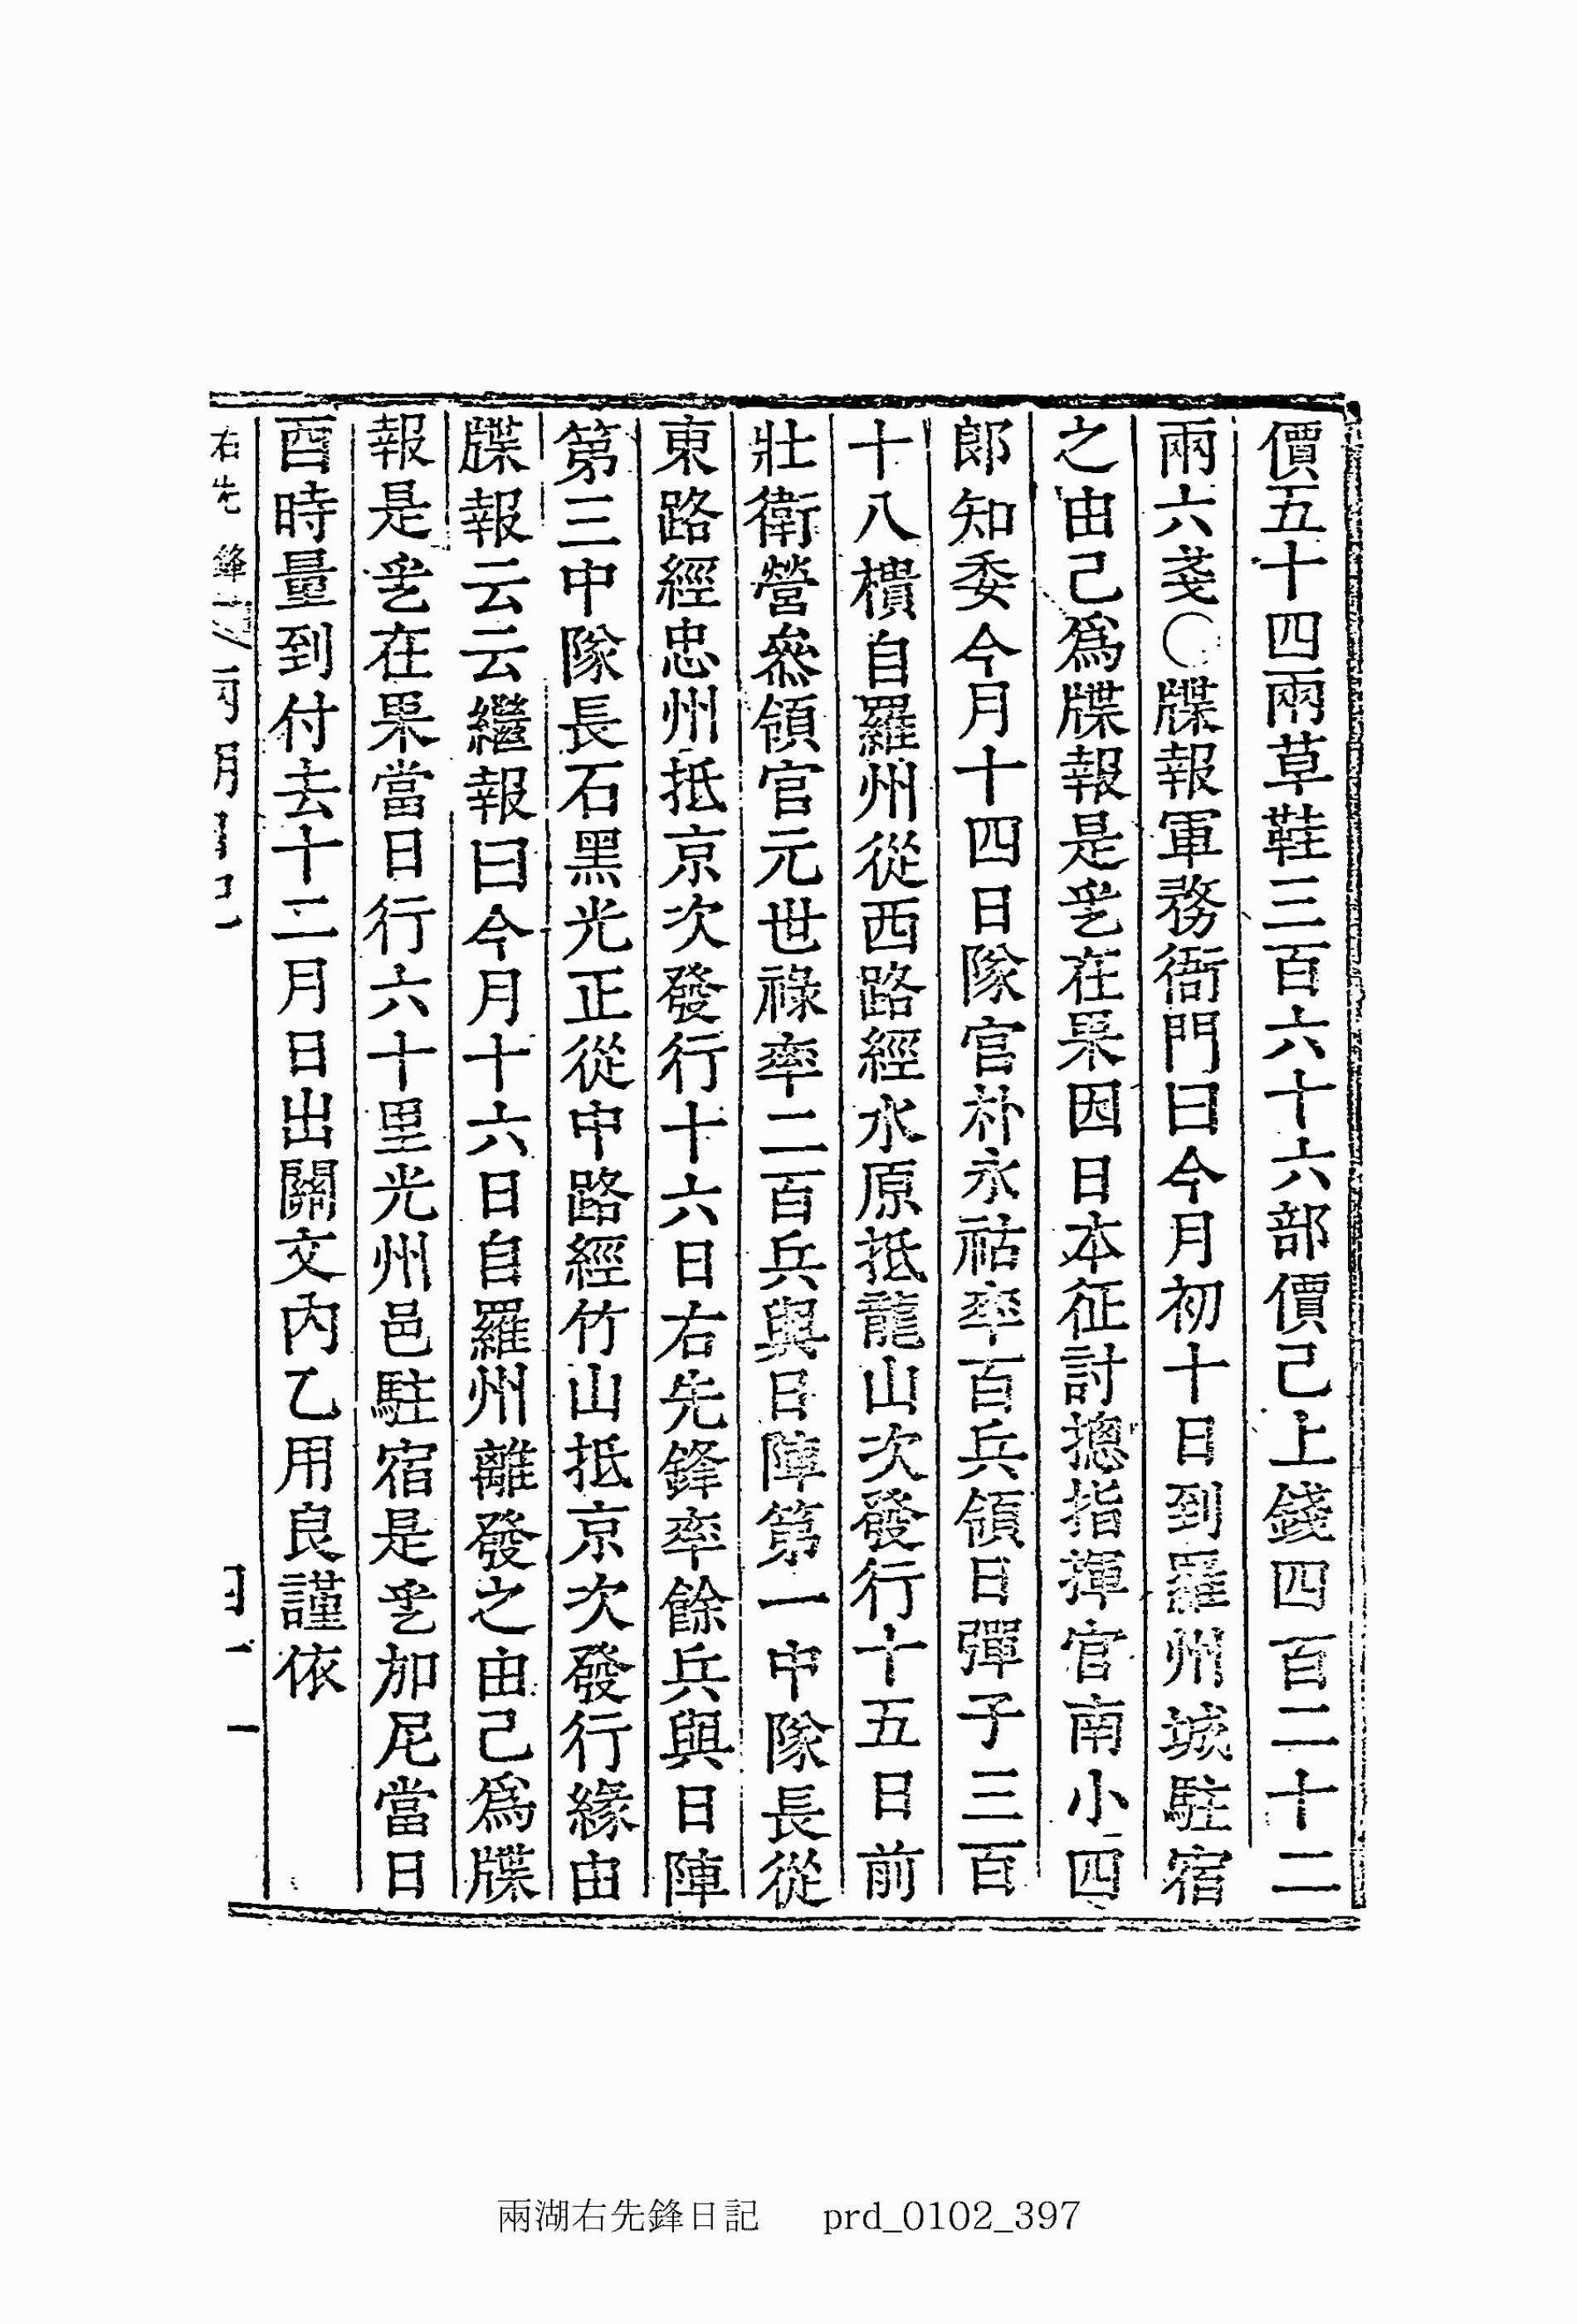 價五十四兩草鞋三百六十六部價己上錢四百二十二
兩六戔〇牒報軍務衙門曰今月初十日到羅州城駐宿
之由己爲牒報是乎在果因日本征討摠指揮官南小四
郎知委今月十四日隊官朴永祜率百兵領日彈子三百
十八樻自羅州從西路經水原抵龍山次發行十五日前
壯衛營叅領官元世祿率二百兵與日陣第一中隊長從
東路經忠州抵京次發行十六日右先鋒率餘兵與日陣
第三中隊長石黑光正從中路經竹山抵京次發行緣由
牒報云云繼報曰今月十六日自羅州離發之由己爲牒
報是乎在果當日行六十里光州邑駐宿是乎加尼當日
酉時量到付去十二月日出關文內乙用良謹依
右先鋒
兩湖右先鋒日記 prd_0102_397